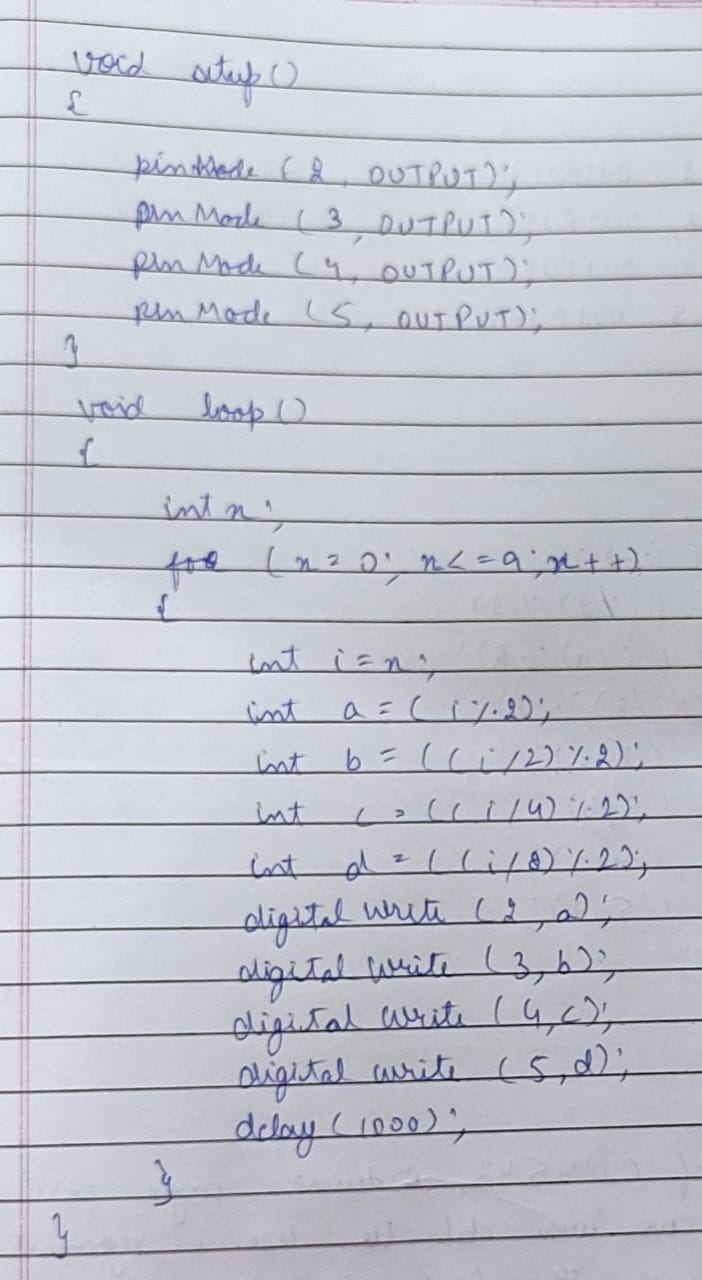 void setup()
{
pinMode (2, OUTPUT);
pin Mode (3, OUTPUT);
pin Mode (4, OUTPUT);
pin Mode (5, OUTPUT);
}
void loop()
{
int n;
for (n = 0; n <= 9; n++)
{
int i = n;
int a = ( i % 2);
int b = ((i/2) % 2);
int c = ((i/4) % 2);
int d = ((i/8) % 2);
digital write (2, a);
digital write (3, b);
digital write (4, c);
digital write (5, d);
delay (1000);
}
}